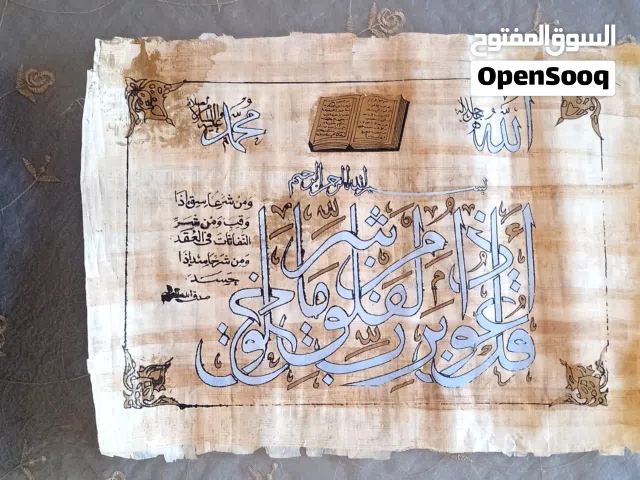 السوق المفتوح
OpenSooq
الله جل جلاله
محمد
بسم الله الرحمن الرحيم
قل أعوذ برب الفلق من شر ما خلق
ومن شر غاسق اذا
وقب ومن شر
النفاثات في العقد
ومن شر حاسد إذا
حسد
صدق الله العظيم